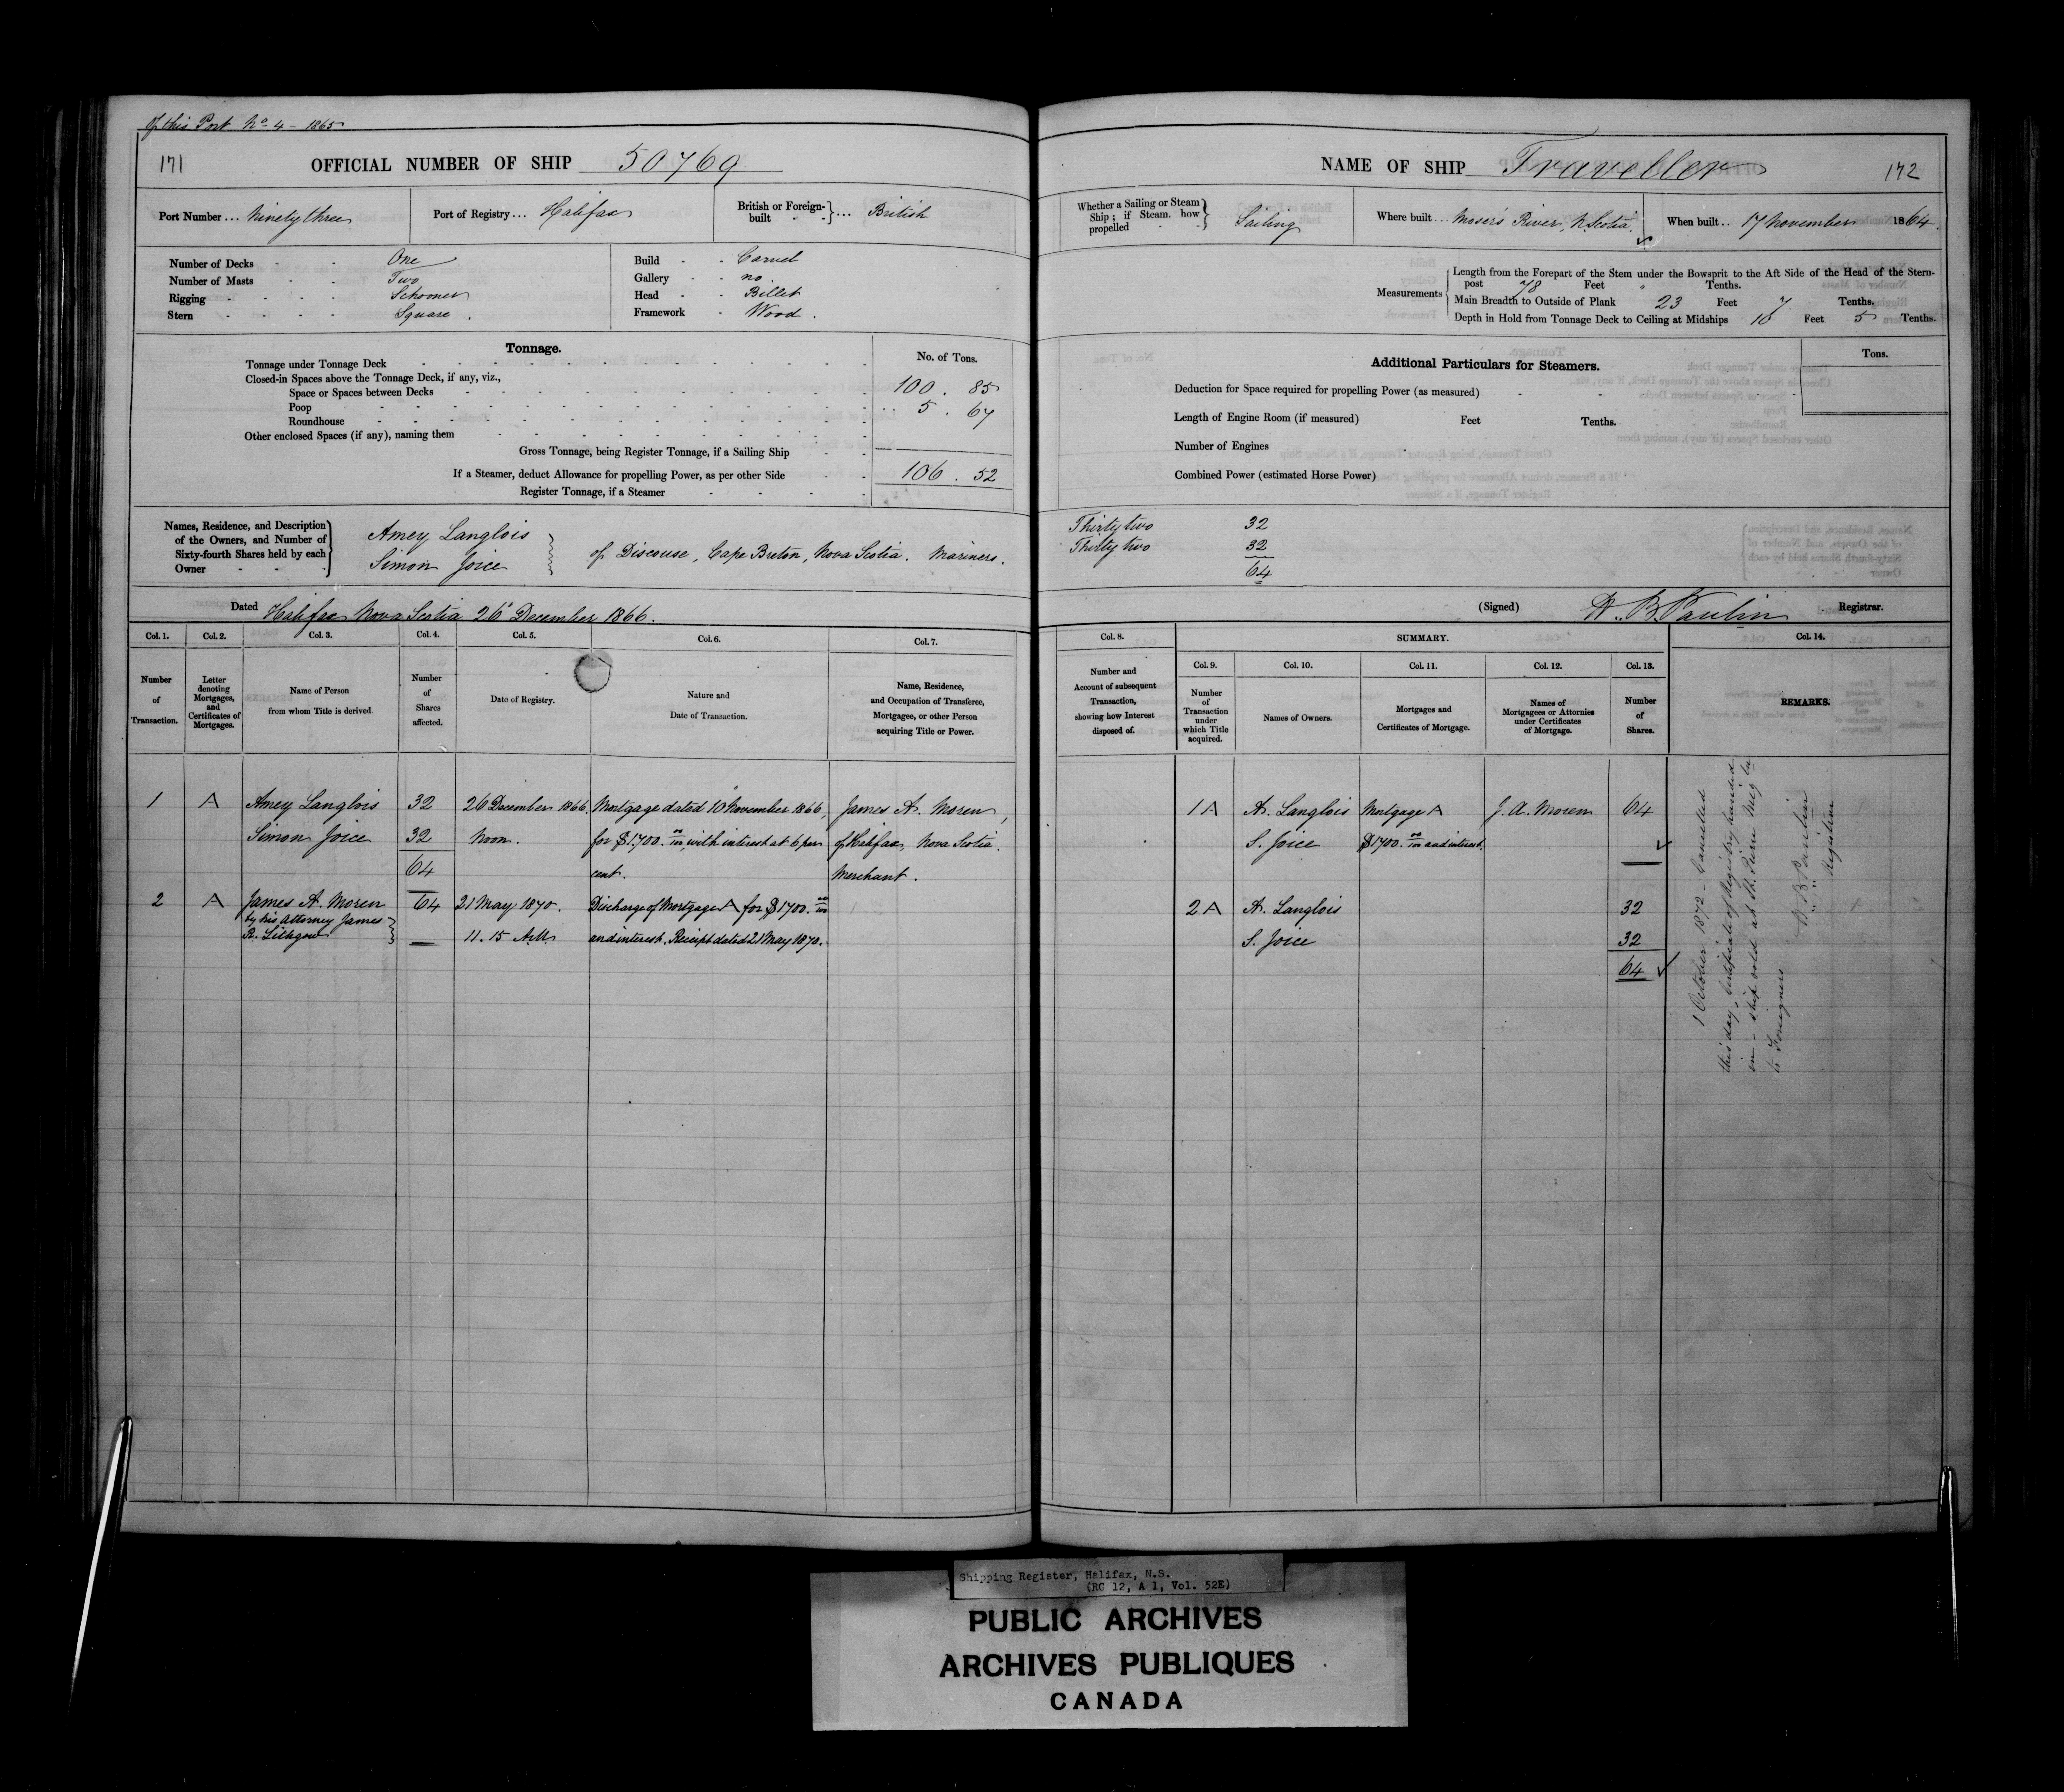 Of this Port No 4 - 1865
171
OFFICIAL NUMBER OF SHIP 50769
Port Number ... Ninety three
Port of Registry ... Halifax
British or Foreign-built ... British
Number of Decks - - One
Number of Masts - - Two
Rigging - - - - Schooner
Stern - - - - Square.
Build - - Carvel
Gallery - - no
Head - - Billet
Framework - Wood.
Tonnage.
No. of Tons.
Tonnage under Tonnage Deck
Closed-in Spaces above the Tonnage Deck, if any, viz.,
100 . 85
Space or Spaces between Decks
Poop
5 . 67
Roundhouse
Other enclosed Spaces (if any), naming them
Gross Tonnage, being Register Tonnage, if a Sailing Ship
If a Steamer, deduct Allowance for propelling Power, as per other Side
106 . 52
Register Tonnage, if a Steamer
Names, Residence, and Description of the Owners, and Number of Sixty-fourth Shares held by each Owner
Amey Langlois
Simon Joice
of Discouse, Cape Breton, Nova Scotia. Mariners.
Dated Halifax Nova Scotia 26 December 1866.
Col. 1. Col. 2. Col. 3. Col. 4. Col. 5. Col. 6. Col. 7.
Number of Transaction.
Letter denoting Mortgages, and Certificates of Mortgages.
Name of Person from whom Title is derived.
Number of Shares affected.
Date of Registry.
Nature and Date of Transaction.
Name, Residence, and Occupation of Transferee, Mortgagee, or other Person acquiring Title or Power.
1 A Amey Langlois 32 26 December 1866. Mortgage dated 10 November 1866, James A. Moren,
Simon Joice 32 Noon. for $1700.00/100, with interest at 6 per of Halifax, Nova Scotia.
64 cent. Merchant.
2 A James A. Moren 64 21 May 1870. Discharge of Mortgage A for $1700.00/100
by his Attorney James
R. Lithgow 11.15 AM and interest. Receipt dated 21 May 1870.
NAME OF SHIP Traveller
172
Whether a Sailing or Steam Ship; if Steam, how propelled
Sailing
Where built ... Moser's River, N. Scotia.
When built .. 17 November 1864.
Measurements
Length from the Forepart of the Stem under the Bowsprit to the Aft Side of the Head of the Stern-
post 78 Feet " Tenths.
Main Breadth to Outside of Plank 23 Feet 7 Tenths.
Depth in Hold from Tonnage Deck to Ceiling at Midships 10 Feet 5 Tenths.
Additional Particulars for Steamers.
Tons.
Deduction for Space required for propelling Power (as measured)
Length of Engine Room (if measured) Feet Tenths.
Number of Engines
Combined Power (estimated Horse Power)
Thirty two 32
Thirty two 32
64
(Signed) H. B. Paulin Registrar.
Col. 8. SUMMARY. Col. 14.
Col. 9. Col. 10. Col. 11. Col. 12. Col. 13.
Number and Account of subsequent Transaction, showing how Interest disposed of.
Number of Transaction under which Title acquired.
Names of Owners.
Mortgages and Certificates of Mortgage.
Names of Mortgagees or Attornies under Certificates of Mortgage.
Number of Shares.
REMARKS.
1 A A. Langlois Mortgage A J. A. Moren 64
S. Joice $1700.00/100 and interest.
2 A A. Langlois 32
S. Joice 32
64
1 October 1872 - Cancelled
this day, Certificate of Registry handed
in - ship sold at St. Pierre Miq
to Foreigners
H B Paulin
Registrar
Shipping Register, Halifax, N.S.
(RG 12, A 1, Vol. 52E)
PUBLIC ARCHIVES
ARCHIVES PUBLIQUES
CANADA